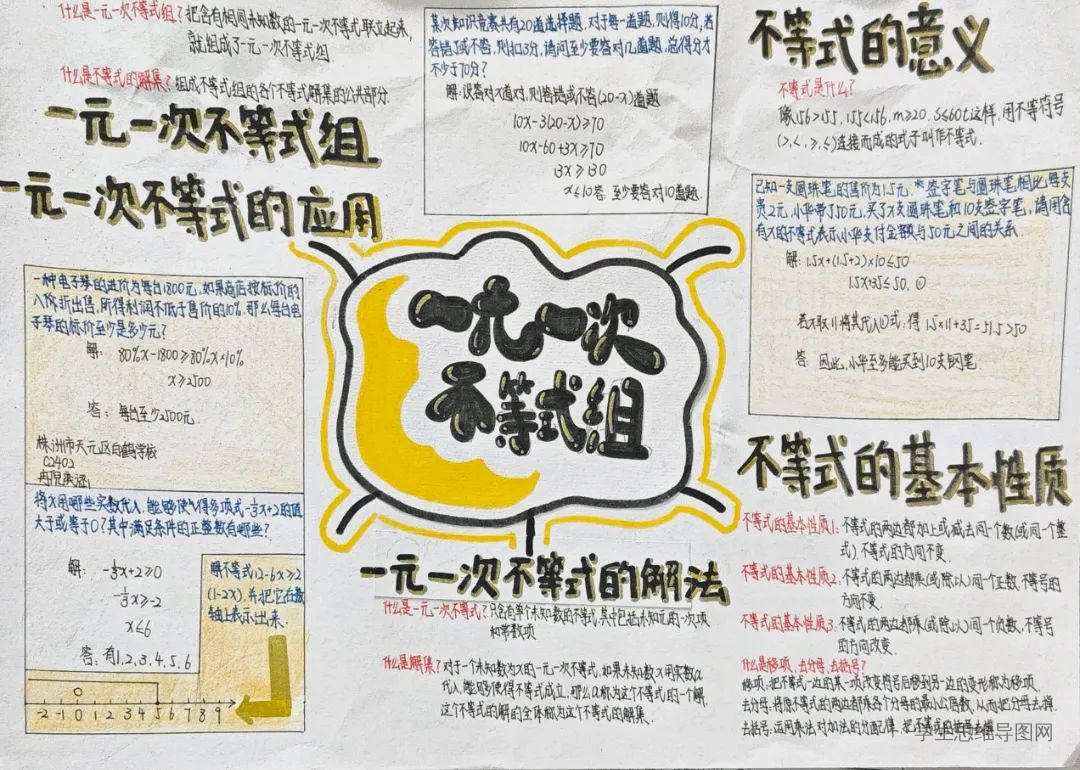 什么是一元一次不等式组？把含有相同未知数的一元一次不等式联立起来，
就组成了一元一次不等式组.
什么是不等式的解集？组成不等式组的各个不等式解集的公共部分
一元一次不等式组
一元一次不等式的应用
某次知识竞赛共有20道选择题.对于每一道题,则得10分,若
答错了或不答,则扣3分,请问至少要答对几道题,总得分才
不少于70分?
解:设答对x道对,则答错或不答(20-x)道题
10x-3(20-x)≥70
10x-60+3x≥70
13x≥130
x≤10答:至少要答对10道题.
不等式的意义
不等式是什么?
像156>155,155<156,m≥20,S≤60t这样,用不等符号
(>,<,≥,≤)连接而成的式子叫作不等式.
已知一支圆珠笔的售价为1.5元,签字笔与圆珠笔相比每支
贵2元,小华带了50元,买了x支圆珠笔和10支签字笔,请用含
有x的不等式表示小华支付金额与50元之间的关系.
解:1.5x+(1.5+2)×10≤50
1.5x+35≤50.①
若x取11将其代入①式:得1.5×11+35=51.5>50
答:因此,小华至多能买到10支钢笔.
一元一次
不等式组
一种电子琴的进价为每台1800元,如果商店按标价的
八折折出售,所得利润不低于售价的10%,那么每台电
子琴的标价至少是多少元?
解:80%x-1800≥80%x×10%
x≥2500
答:每台至少2500元.
株洲市天元区白鹤学校
C2402
将x用哪些实数代入,能够使得多项式-⅓x+2的值
大于或等于0?其中满足条件的正整数有哪些?
解:-⅓x+2≥0
-⅓x≥-2
x≤6
答:有1,2,3,4,5,6
解不等式12-6x≥2
(1-2x),并把它在数
轴上表示出来.
-2 -1 0 1 2 3 4 5 6 7 8 9
一元一次不等式的解法
什么是一元一次不等式?只含有单个未知数的不等式,其中包括未知元的一次项
和常数项
什么是解集?对于一个未知数为x的一元一次不等式,如果未知数x用实数a
代入,能够使得不等式成立,那么a称为这个不等式的一个解,
这个不等式的解的全体称为这个不等式的解集.
不等式的基本性质
不等式的基本性质1:不等式的两边都加上或减去同一个数(或同一个整
式)不等式的方向不变.
不等式的基本性质2,不等式的两边都乘(或除以)同一个正数,不等号的
方向不变.
不等式的基本性质3:不等式的两边都乘(或除以)同一个负数,不等号
的方向改变.
什么是移项、去分母、去括号?
移项:把不等式一边的某一项改变符号后移到另一边的变形称为移项.
去分母:将原不等式的两边都乘各个分母的最小公倍数,从而把分母去掉.
去括号:运用乘法对加法的分配律,把不等式的括号去掉
学生思维导图网